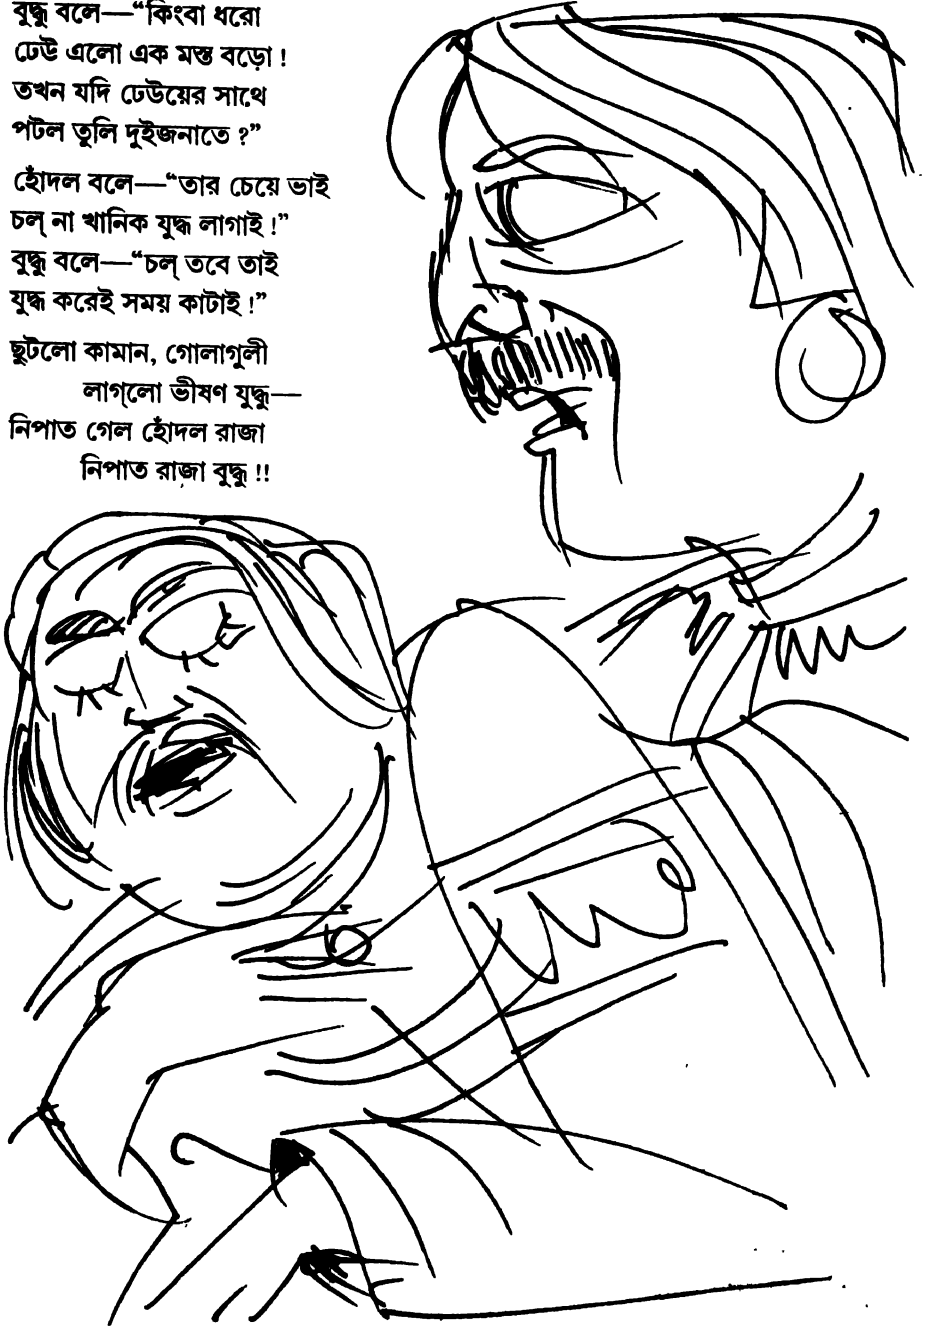 বুদ্ধু বলে—“কিংবা ধরো
ঢেউ এলো এক মস্ত বড়ো !
তখন যদি ঢেউয়ের সাথে
পটল তুলি দুইজনাতে ?”
হোঁদল বলে—“তার চেয়ে ভাই
চল্ না খানিক যুদ্ধ লাগাই !”
বুদ্ধু বলে—“চল্ তবে তাই
যুদ্ধ করেই সময় কাটাই !”
ছুটলো কামান, গোলাগুলী
লাগ্‌লো ভীষণ যুদ্ধু—
নিপাত গেল হোঁদল রাজা
নিপাত রাজা বুদ্ধু !!